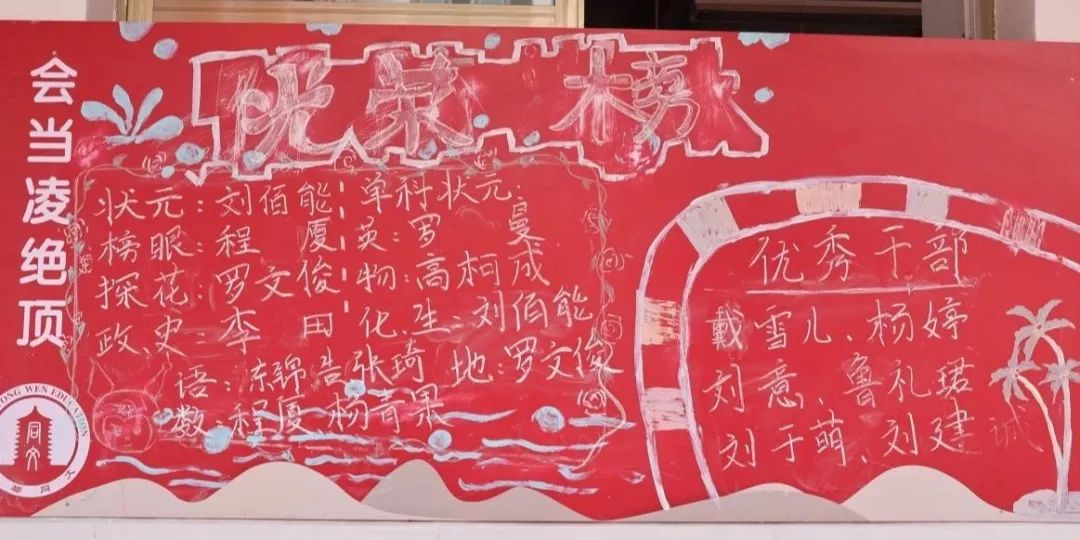 会当凌绝顶
光荣榜
状元:刘伯能
榜眼:程厦
探花:罗文俊
政、史:李田
单科状元:
英:罗曼
物:高柯成
化、生:刘伯能
语:陈锦浩 张琦 地:罗文俊
数:程厦、杨青果
优秀干部
戴雪儿、杨婷
刘意、鲁礼珺
刘于萌、刘建
同文
WEN EDUCATION